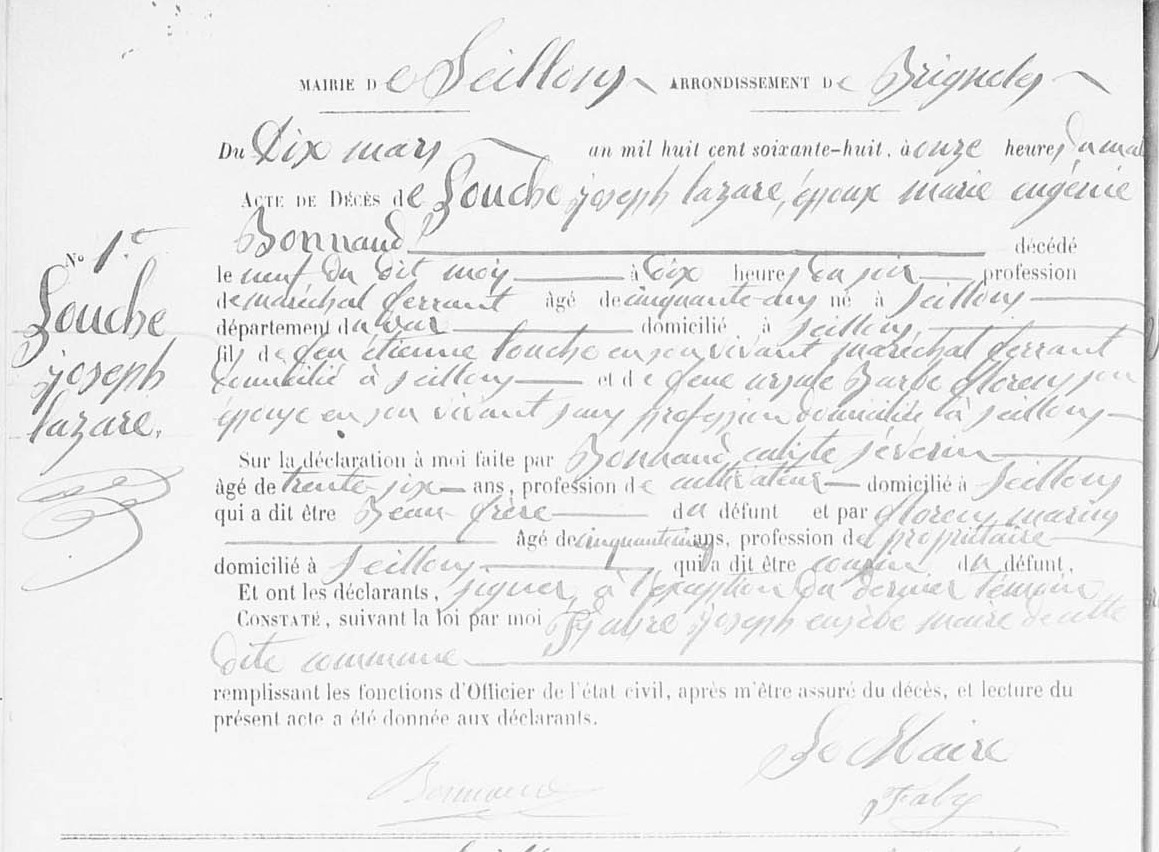 MAIRIE De Seillons ARRONDISSEMENT De Brignoles
Du Dix mars an mil huit cent soixante-huit, à onze heures du mat
ACTE DE DÉCÈS de Louche joseph lazare, époux marie eugénie
Bonnaud décédé
le neuf du dit mois à Dix heures du soir profession
de maréchal ferrant âgé de cinquante-ans né à Seillons
département du var domicilié à Seillons,
fils de feu étienne Louche en son vivant maréchal ferrant
Domicilié à Seillons et de feue ursule Barbe florens son
épouse en son vivant sans profession domiciliée à Seillons
Nº 1.er
Louche
joseph
lazare.
Sur la déclaration à moi faite par Bonnaud calixte séverin
âgé de trente-six ans, profession de cultivateur domicilié à Seillons
qui a dit être Beau-frère du défunt et par florens marius
âgé de ans, profession de propriétaire
domicilié à Seillons qui a dit être cousin du défunt,
Et ont les déclarants, signer, à l'exception du dernier témoin
CONSTATÉ, suivant la loi par moi joseph eusèbe maire de cette
dite commune
remplissant les fonctions d'Officier de l'état civil, après m'être assuré du décès, et lecture du
présent acte a été donnée aux déclarants.
Le Maire
Bonnaud